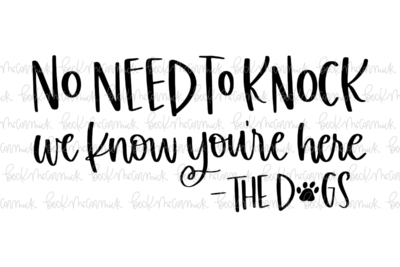 No NEED To KNOCK
we know you're here
-THE DOGS